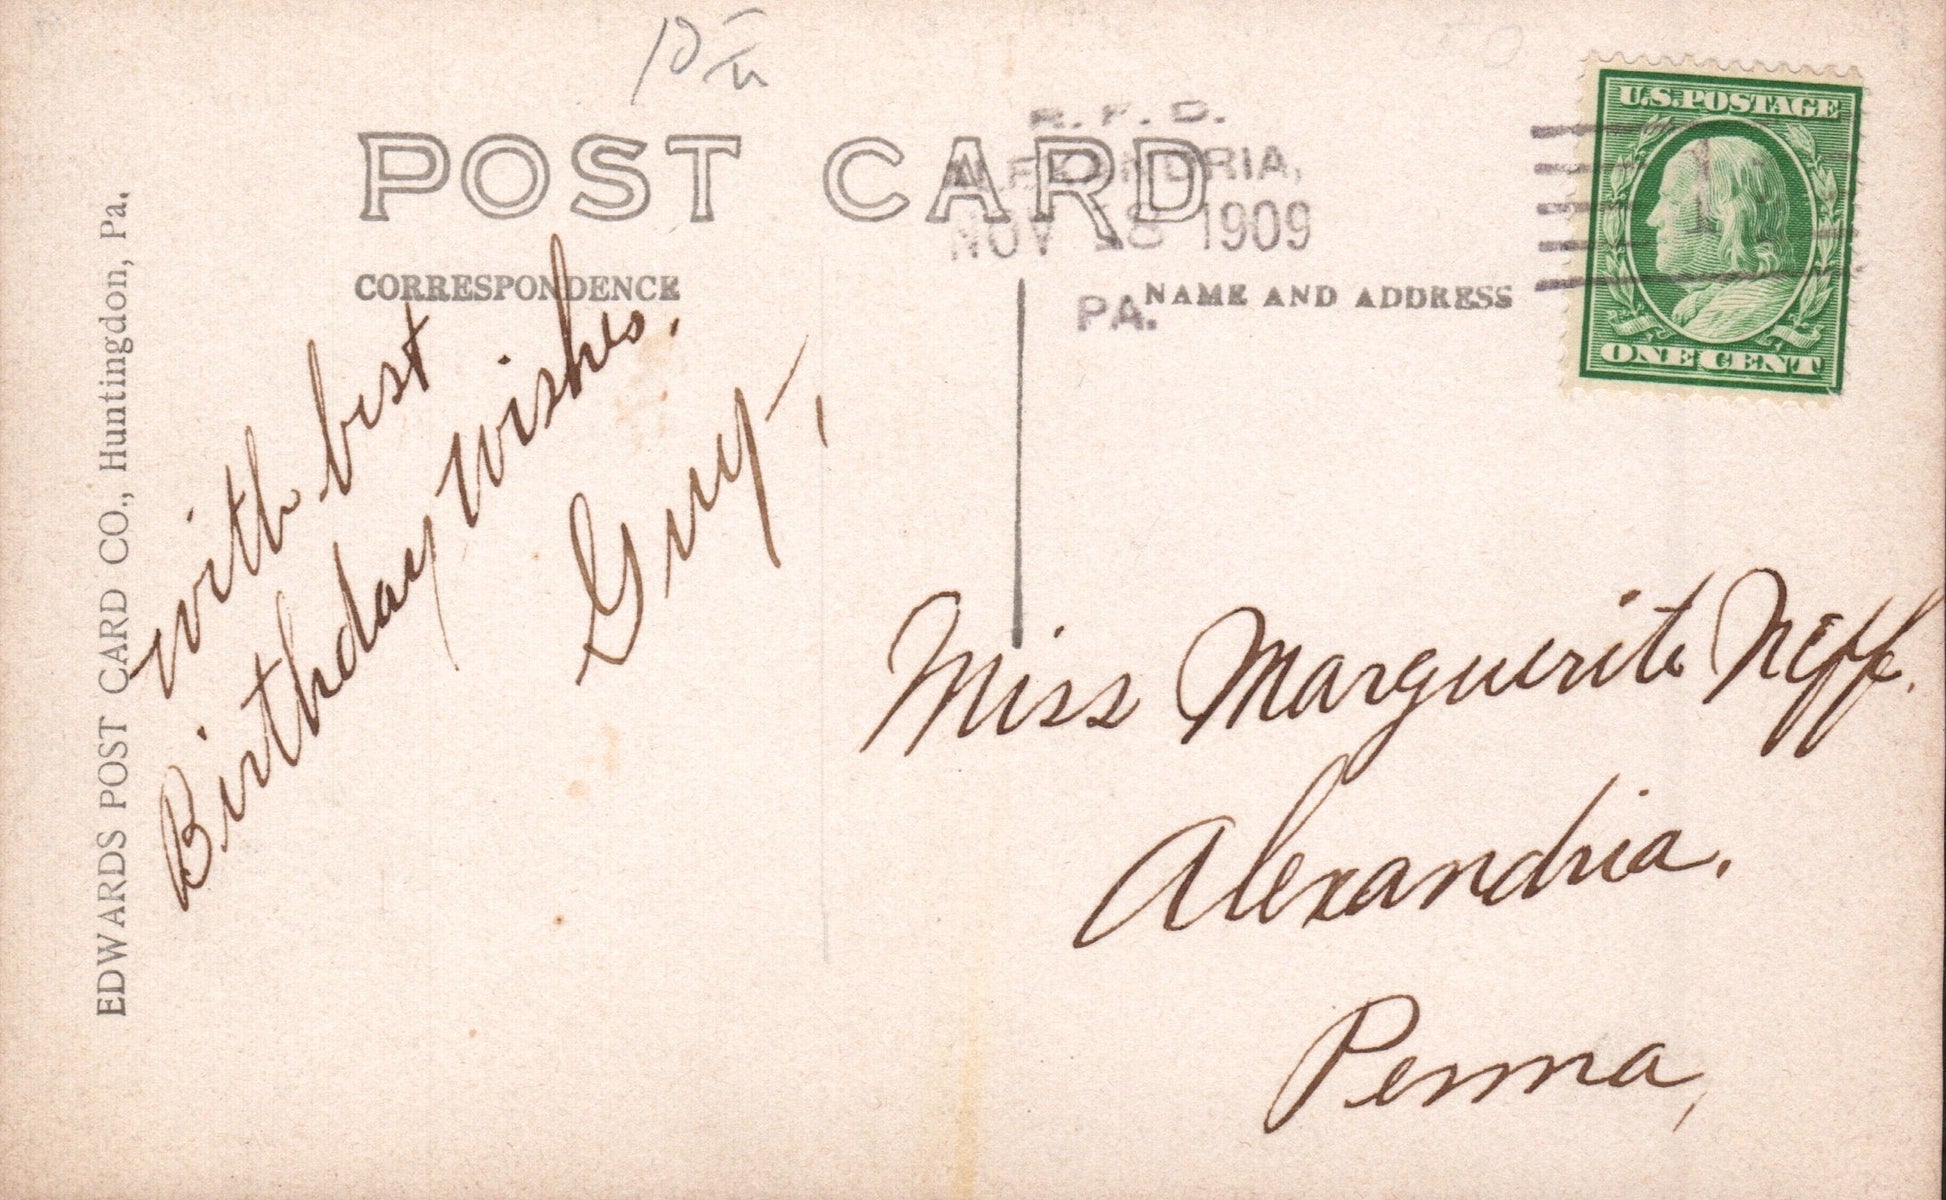 POST CARD
R. F. D.
ALEXANDRIA,
NOV 18 1909
PA.
U.S. POSTAGE
1
ONE CENT
CORRESPONDENCE
NAME AND ADDRESS
EDWARDS POST CARD CO., Huntingdon, Pa.
With best
Birthday Wishes.
Guy,
Miss Marguerite Neff.
Alexandria.
Penna,